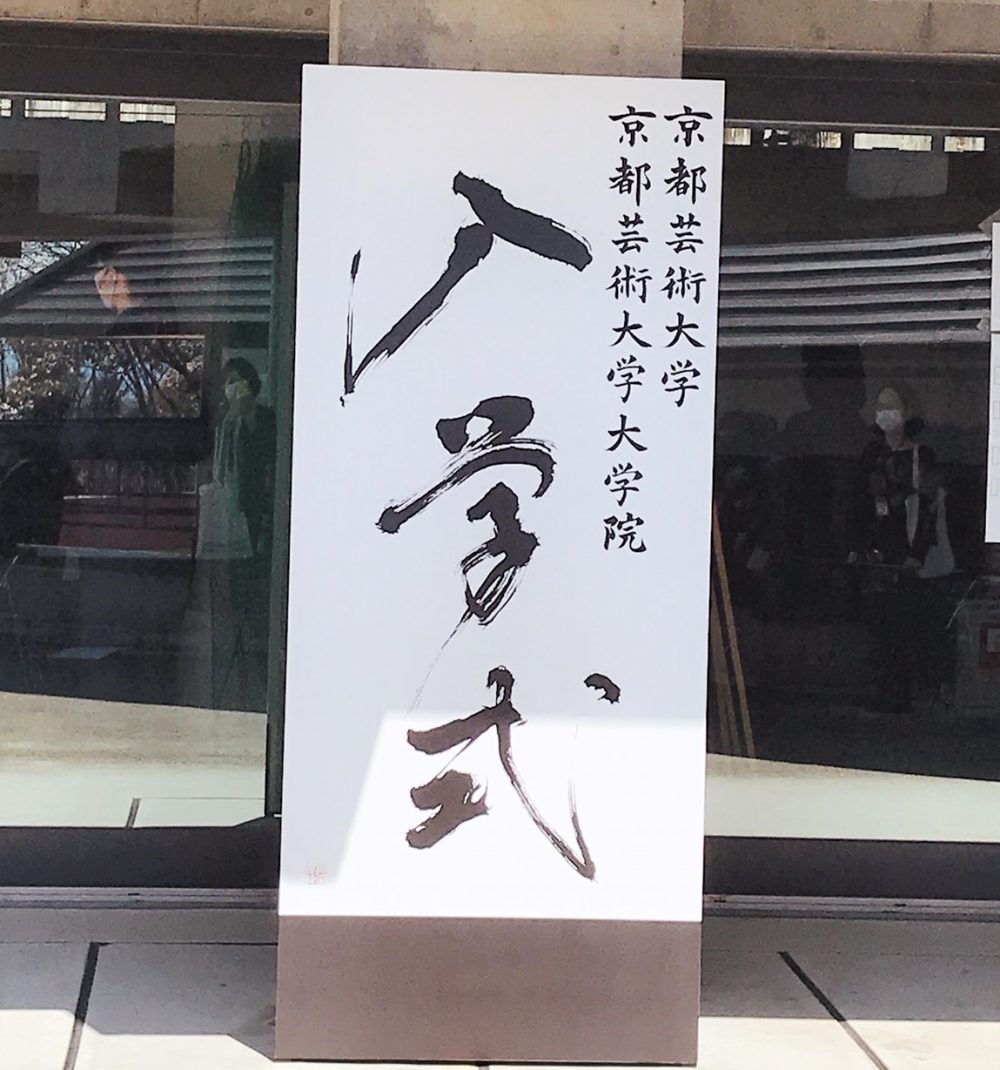 京都芸術大学
京都芸術大学大学院
入学式